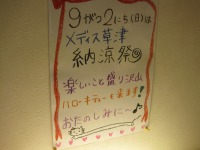 9がつ2にち(日)は
メディス草津
納涼祭
楽しいこと盛り沢山
ハローキティーも来ます!
おたのしみに〜♪